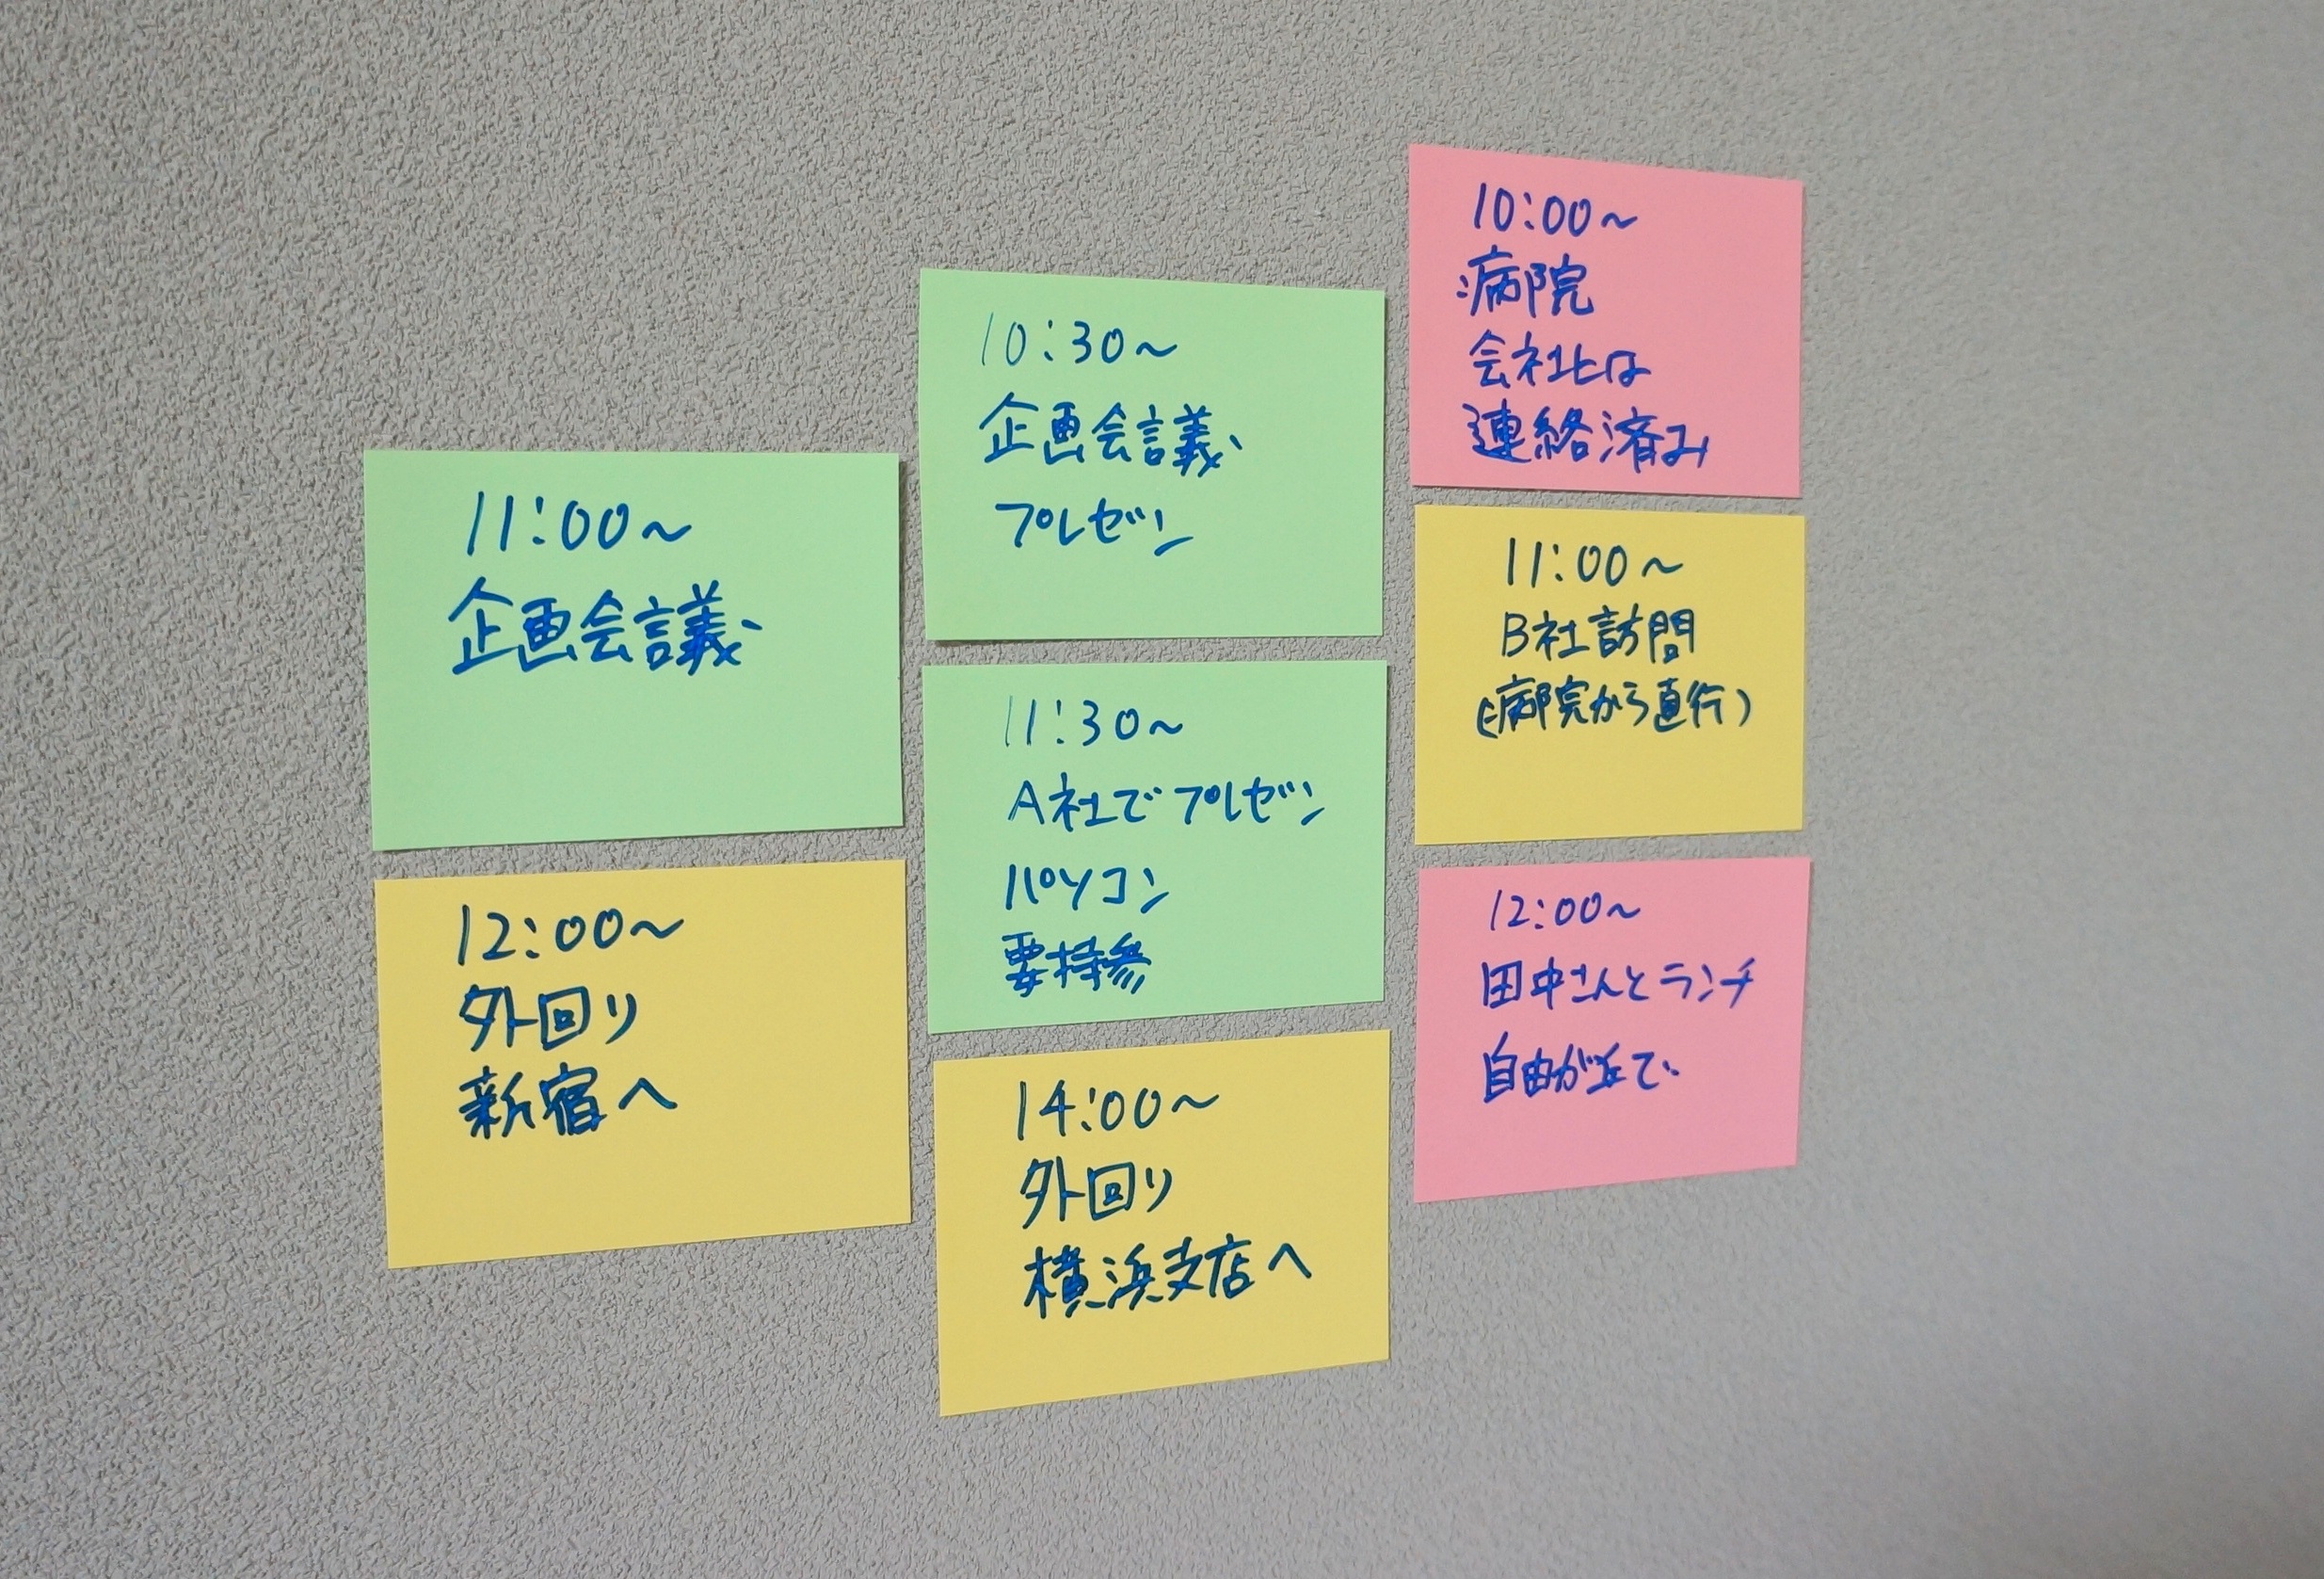 11:00~
企画会議
12:00~
外回り
新宿へ
10:30~
企画会議
プレゼン
11:30~
A社でプレゼン
パソコン
要持参
14:00~
外回り
横浜支店へ
10:00~
病院
会社とは
連絡済み
11:00~
B社訪問
(病院から直行)
12:00~
田中さんとランチ
自由が丘で